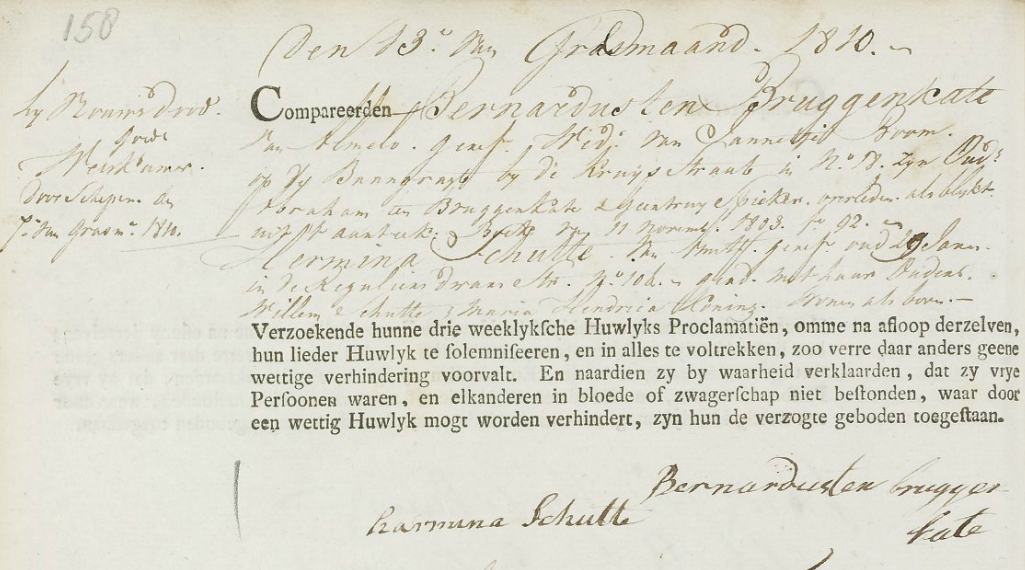 158
Den 13.e van Grasmaand. 1810.
Compareerden Bernardus ten Bruggenkate
van Almelo. geref. Wed.r van Jannetje Boom.
op de Baangragt by de Kruys Straat in No 18. zyn Oud.s
Abraham ten Bruggenkate & Geertruy Spieker. overleden. als blykt
uit St aanteek. Boek van 11 Novemb. 1803. fo 92.
Hermina Schutte. van Amst. geref. oud 29 Jaar.
in de Reguliersdwars Str. No. 106. gead. met haar Ouders.
Willem Schutte & Maria Hendrica Koning. Wonen als boven.
Verzoekende hunne drie weeklykſche Huwlyks Proclamatiën, omme na afloop derzelven,
hun lieder Huwlyk te ſolemniſeeren, en in alles te voltrekken, zoo verre daar anders geene
wettige verhindering voorvalt. En naardien zy by waarheid verklaarden, dat zy vrye
Perſoonen waren, en elkanderen in bloede of zwagerſchap niet beſtonden, waar door
een wettig Huwlyk mogt worden verhindert, zyn hun de verzogte geboden toegeſtaan.
Bernardus ten brugger
kate
harmina Schutte
hy Vrouws dood
Weeskamer.
door Schepen. den
van Grasm. 1810.